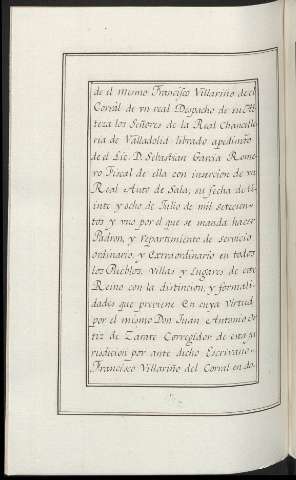 de el mismo Francisco Villariño de el
Corral de vn real Despacho de su Al-
teza los Señores de la Real Chancille-
ria de Valladolid librado apedimto
de el Lic. D. Sebastian Garcia Rome-
ro Fiscal de ella con insercion de vn
Real Auto de Sala, su fecha de Ve-
inte y ocho de Julio de mil setecien-
tos y vno por el que se manda hacer
Padron, y repartimiento de servicio
ordinario, y extraordinario en todos
los Pueblos, Villas y Lugares de este
Reino con la distincion, y formali-
dades que previene. En cuya Virtud
por el mismo Don Juan Antonio Or-
tiz de Zarate Corregidor de esta ju
risdicion por ante dicho Escrivano
Francisco Villariño del Corral en do-